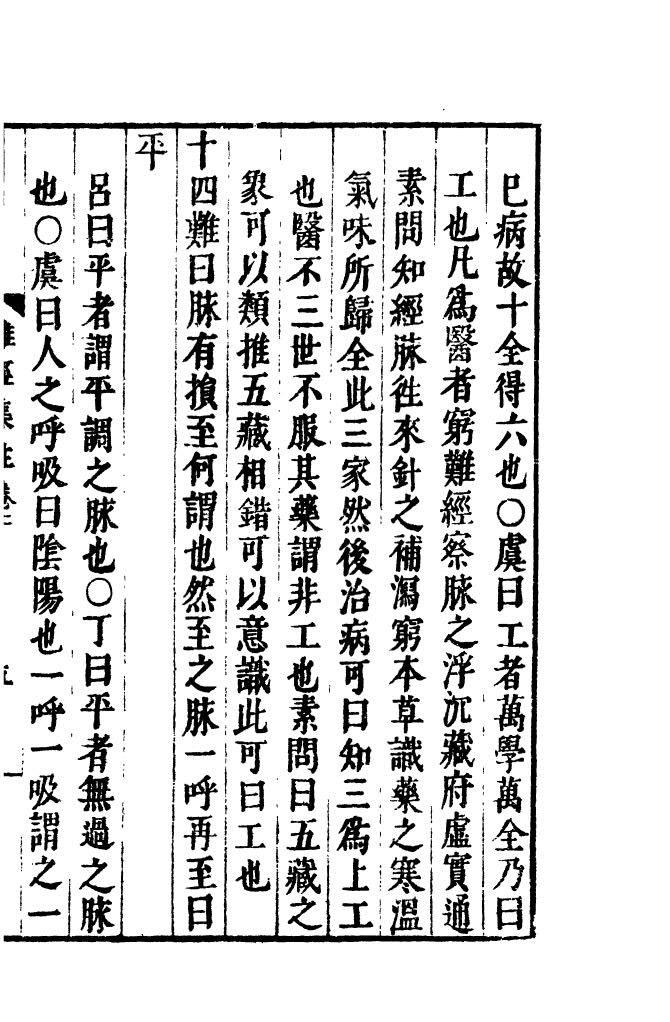 巳病故十全得六也〇虞曰工者萬學萬全乃曰
工也凡爲醫者窮難經察脉之浮沉藏府虛實通
素問知經脉徃來針之補瀉窮本草識藥之寒溫
氣味所歸全此三家然後治病可曰知三爲上工
也醫不三世不服其藥謂非工也素問曰五藏之
象可以類推五藏相錯可以意識此可曰工也
十四難曰脉有損至何謂也然至之脉一呼再至曰
平
呂曰平者謂平調之脉也〇丁曰平者無過之脉
也〇虞曰人之呼吸曰陰陽也一呼一吸謂之一